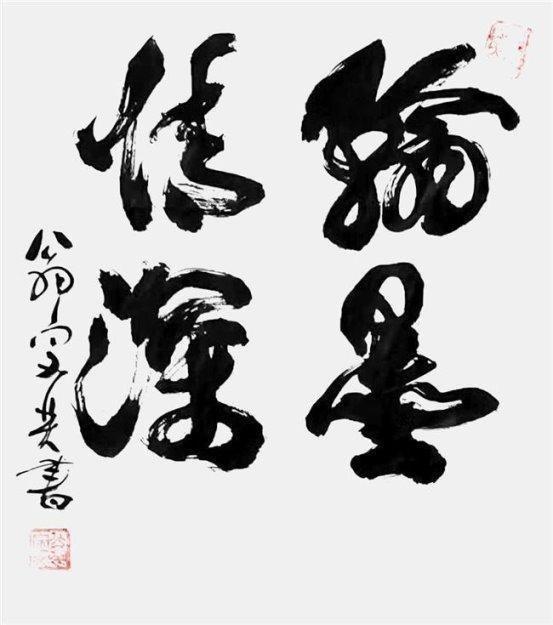 翰墨
情深
翁書